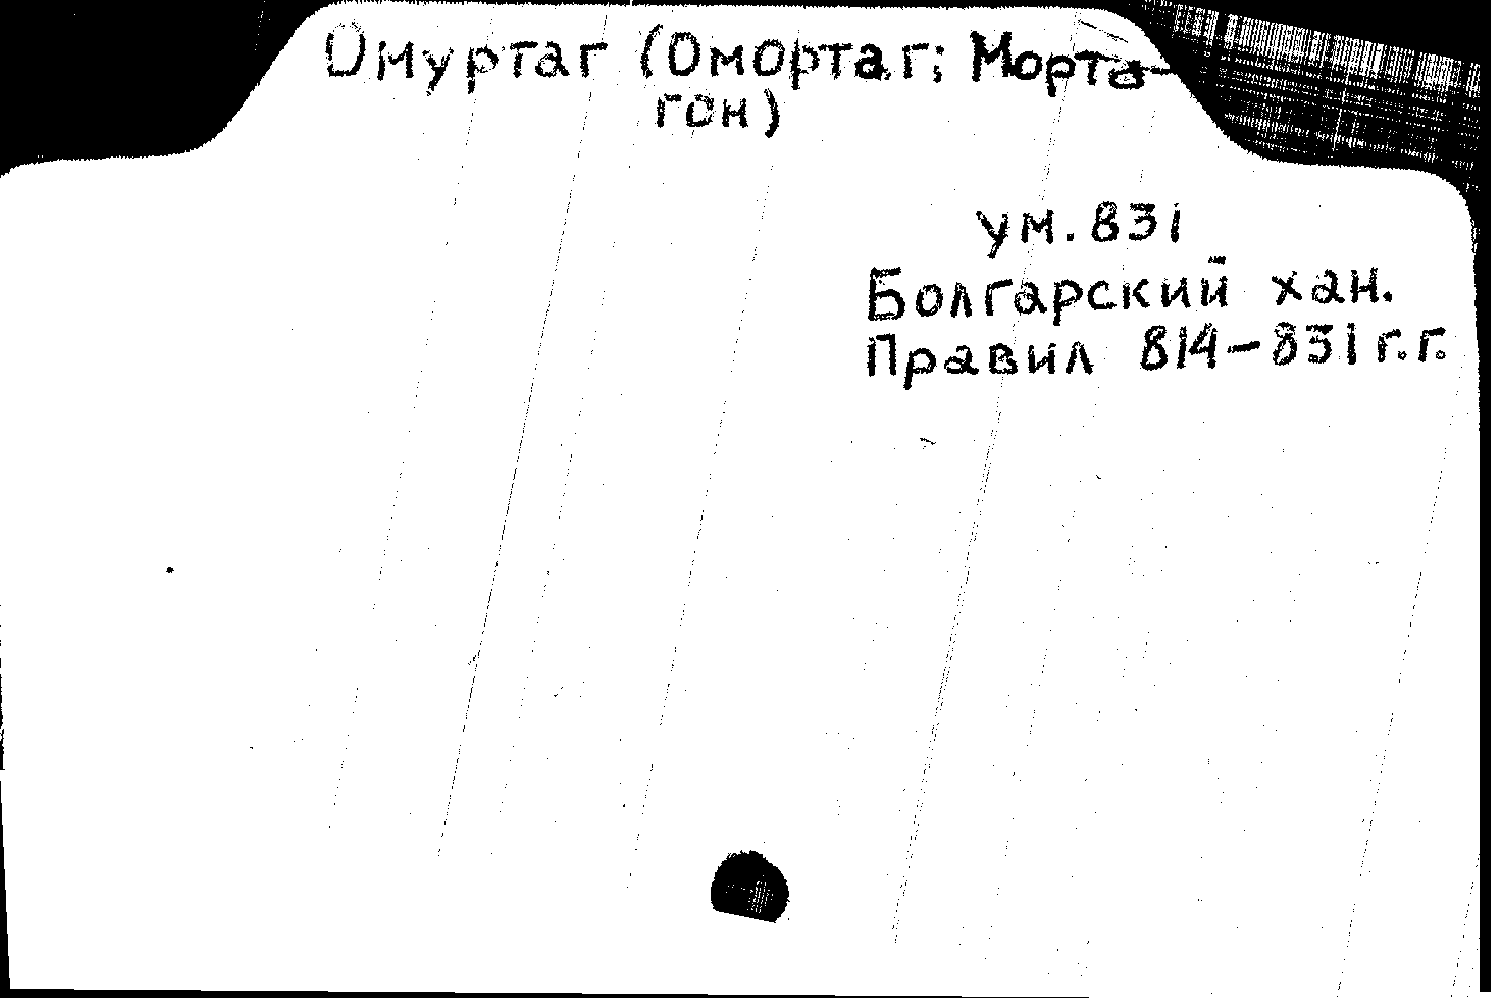 Омуртаг (Омортаг; Морта-
гон)
ум. 831
Болгарский хан.
Правил 814-831 г.г.